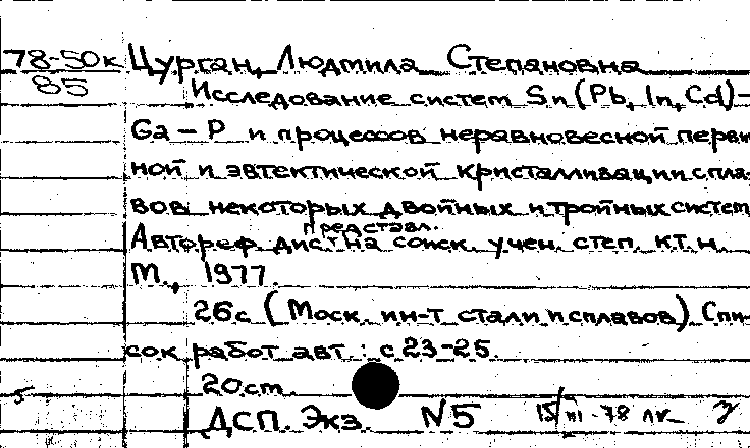 78-50к Цурган, Людмила Степановна
85
Исследование систем Sn(Pb, In, Cd)-
Ga-P и процессов неравновесной перви
ной и эвтектической кристаллизации спла-
вов некоторых двойных и тройных систем
представл.
Автореф. дист. на соиск. учен. степ. к.т.н.
М., 1977.
26с (Моск. ин-т стали и сплавов) Спи-
сок работ авт.: с 23-25.
20см
5
ДСП. Экз. N5 15/III-78